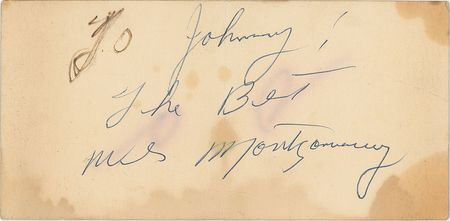 To Johnny!
The Best
Wes Montgomery